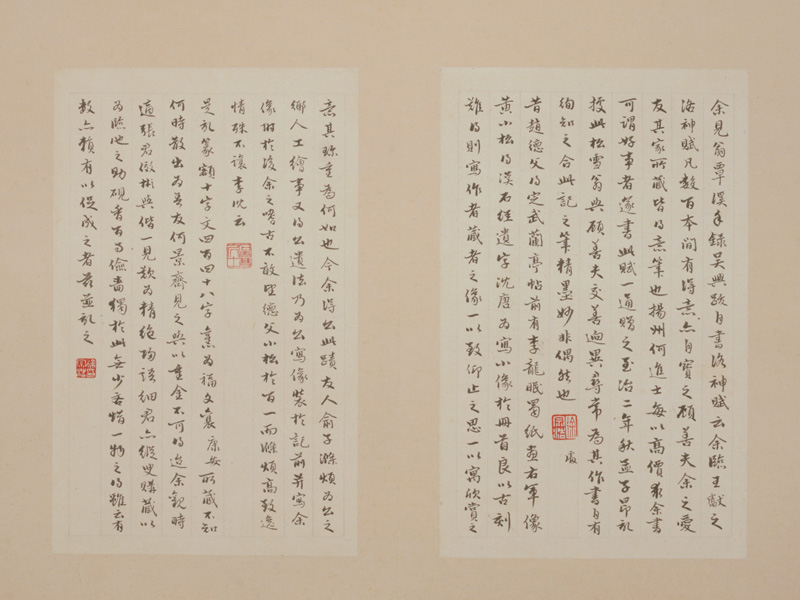 余見翁覃溪手錄吳興跋自書洛神賦云余臨王獻之
洛神賦凡數百本間有得意亦自寶之顧善夫余之愛
友其家所藏皆得意筆也揚州何進士每以高價求余書
可謂好事者遂書此賦一通贈之至治二年秋孟子昂記
按此松雪翁與顧善夫交善迥異尋常為其作書自有
絢知之合此記之筆精墨妙非偶然也
昔趙德父得定武蘭亭帖前有李龍眠蜀紙畫右軍像
黃小松得漢石經遺字沈唐為寫小像於冊首良以古刻
難得則寫作者藏者之像一以致仰止之思一以寓欣賞之
意其珍重為何如也今余得公此蹟友人俞子滌煩為公之
鄉人工繪事又得公遺法乃為公寫像裝於記前并寫余
像附於後余之嗜古不敢望德父小松於百一而滌煩高致逸
情殊不讓李沈云
是記篆額十字文四百四十八字舊為福文襄康安所藏不知
何時散出為吾友何景齋見之與以重金不可得迨余觀時
適張君傲彬與偕一見歎為精絕陶談細君亦縱臾購藏以
為臨池之助硯香百得儉嗇獨於此無少吝惜一物之得雖云有
數亦賴有以促成之者茲並記之